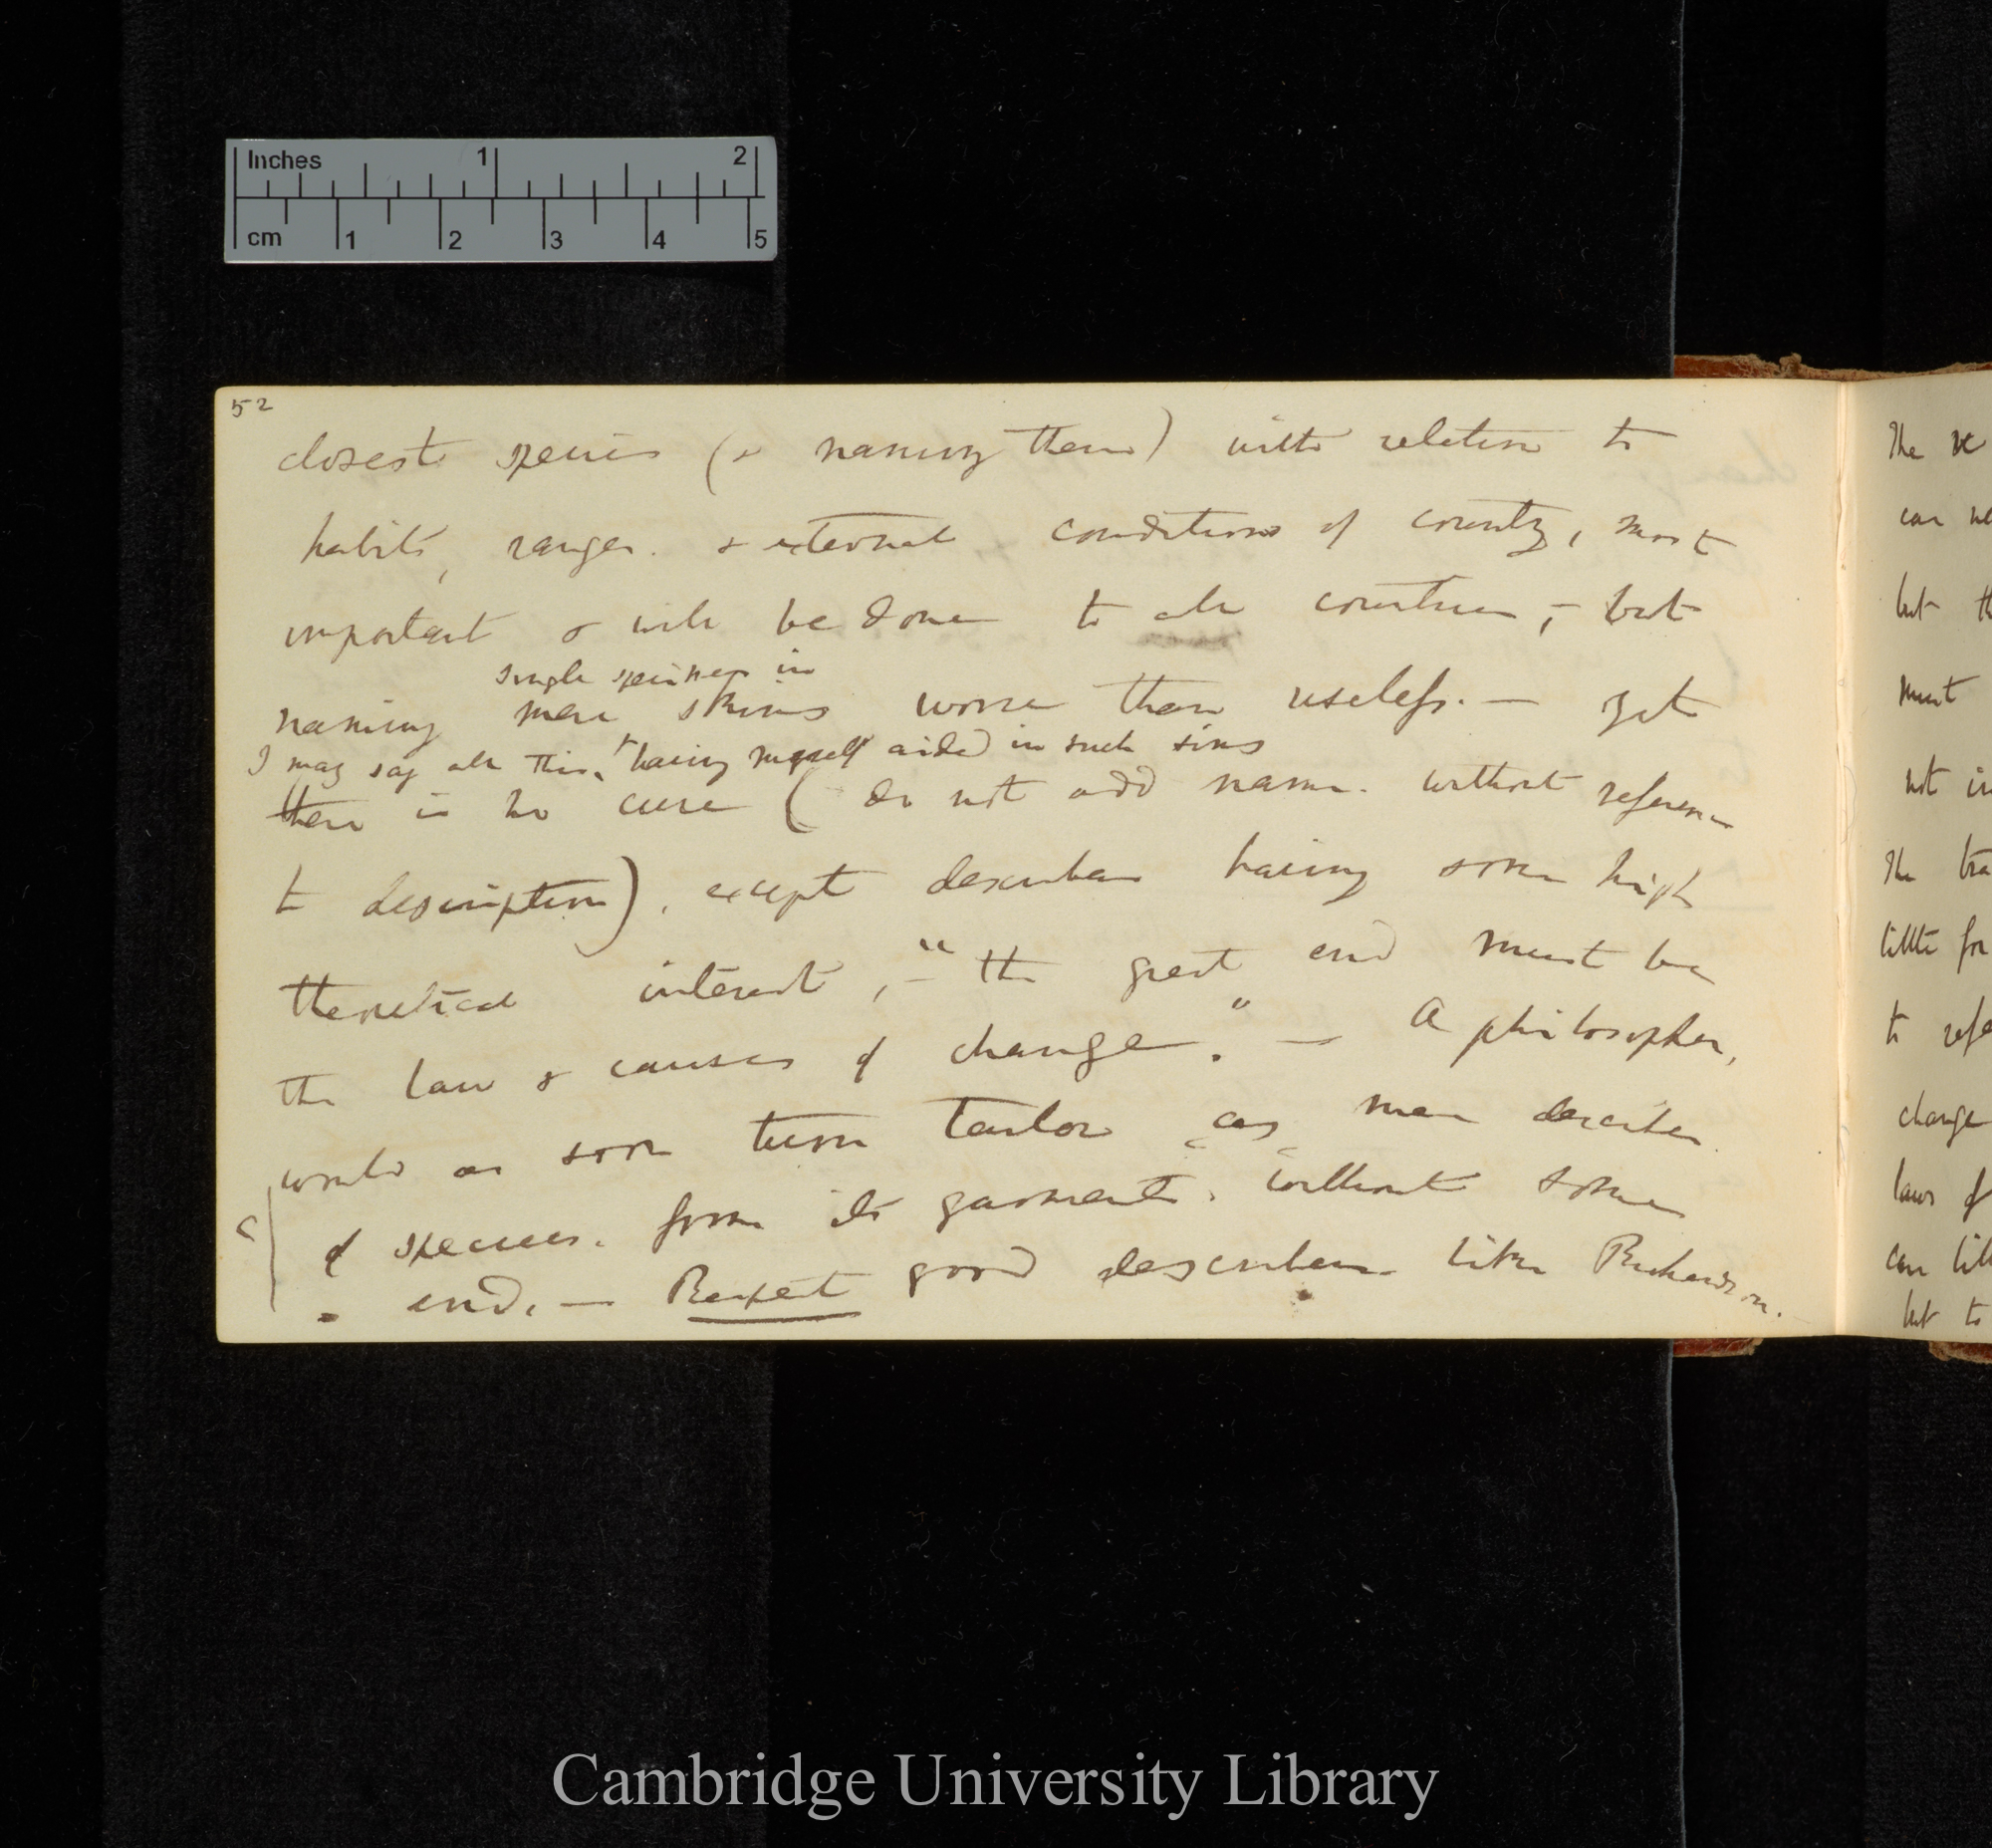 Inches 1 2
cm 1 2 3 4 5
52
closest species (& naming them) with relation to
habits, ranges. & external conditions of country, most
important & will be done to all countries, – but
single specimens in
naming mere skins worse than useless. — yet
I may say all this, having myself aided in such sins
there is no cure (do not add names without reference
to description), except describers having some high
theoretical interest, – "the great end must be
the law & causes of change." — A philosopher,
would as soon turn tailor as mere describer
of species. from its garments, without some
end. — Respect good describers like Richardson.
The
can
but
must
not in
The
little for
to
change
laws of
can
but to
Cambridge University Library